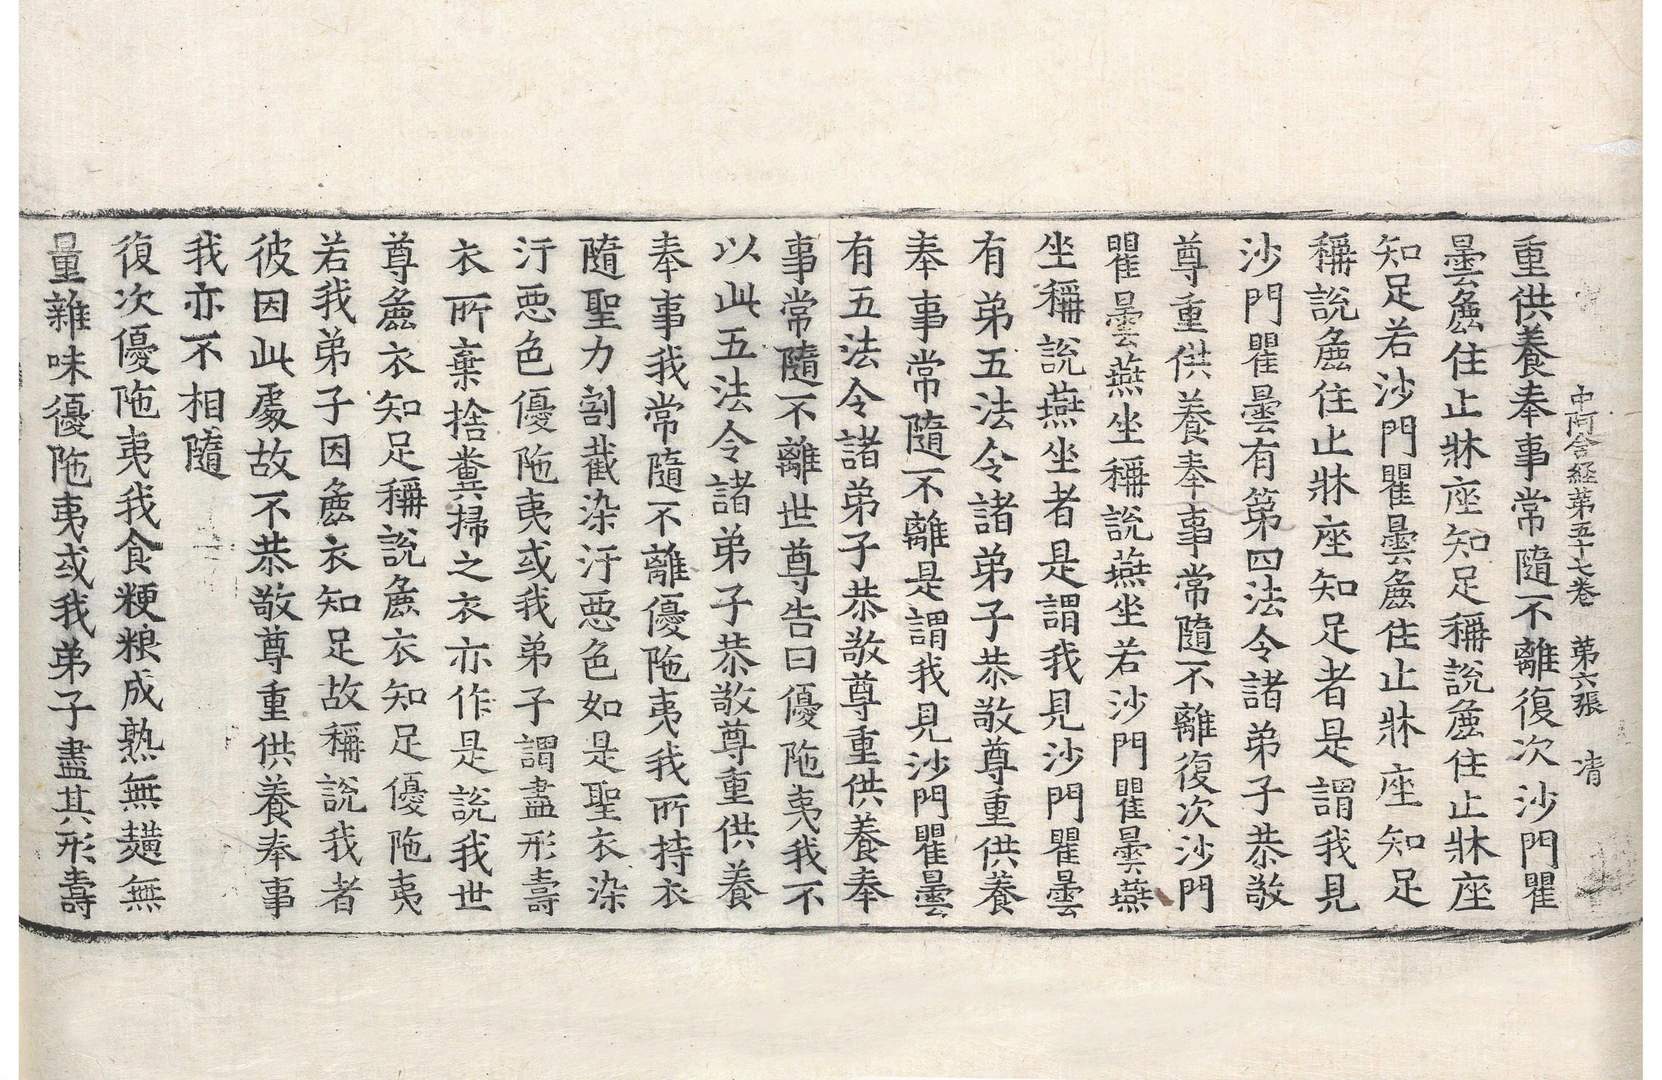 中阿含經第五十七卷 第六張 淸
重供養奉事常隨不離復次沙門瞿
曇麁住止牀座知足稱說麁住止牀座
知足若沙門瞿曇麁住止牀座知足
稱說麁住止牀座知足者是謂我見
沙門瞿曇有第四法令諸弟子恭敬
尊重供養奉事常隨不離復次沙門
瞿曇燕坐稱說燕坐若沙門瞿曇燕
坐稱說燕坐者是謂我見沙門瞿曇
有弟五法令諸弟子恭敬尊重供養
奉事常隨不離是謂我見沙門瞿曇
有五法令諸弟子恭敬尊重供養奉
事常隨不離世尊告曰優陁夷我不
以此五法令諸弟子恭敬尊重供養
奉事我常隨不離優陁夷我所持衣
隨聖力割截染汙惡色如是聖衣染
汙惡色優陁夷或我弟子謂盡形壽
衣所棄捨糞掃之衣亦作是說我世
尊麁衣知足稱說麁衣知足優陁夷
若我弟子因麁衣知足故稱說我者
彼因此處故不恭敬尊重供養奉事
我亦不相隨
復次優陁夷我食粳粮成熟無䵃無
量雜味優陁夷或我弟子盡其形壽